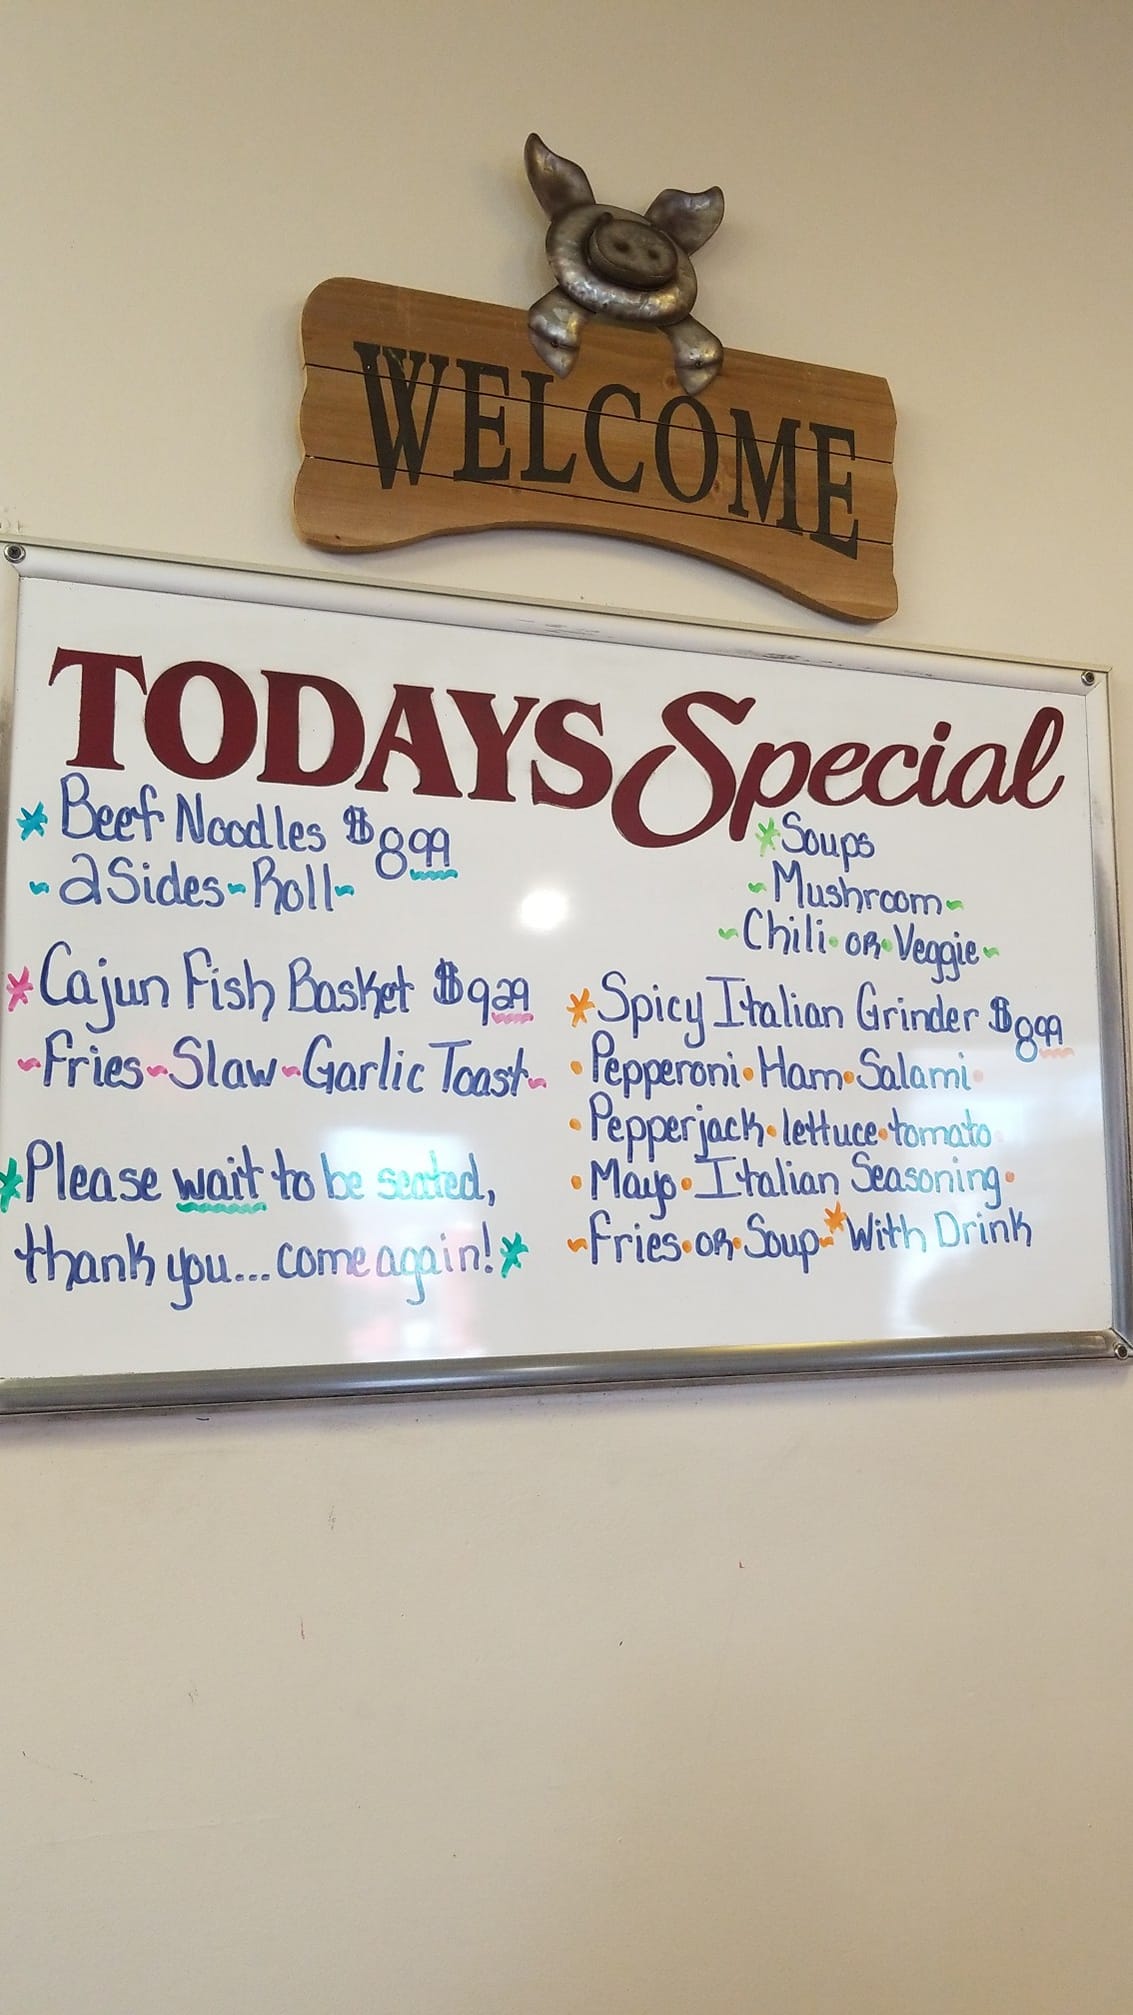 WELCOME
TODAYS Special
*Beef Noodles $8.99
~2 Sides~Roll~
*Cajun Fish Basket $9.29
~Fries~Slaw~Garlic Toast~
*Please wait to be seated,
thank you... come again!*
*Soups
~Mushroom~
~Chili•OR•Veggie~
*Spicy Italian Grinder $8.99
•Pepperoni•Ham•Salami•
•Pepperjack•lettuce•tomato•
•Mayo•Italian Seasoning•
~Fries•OR•Soup~*With Drink